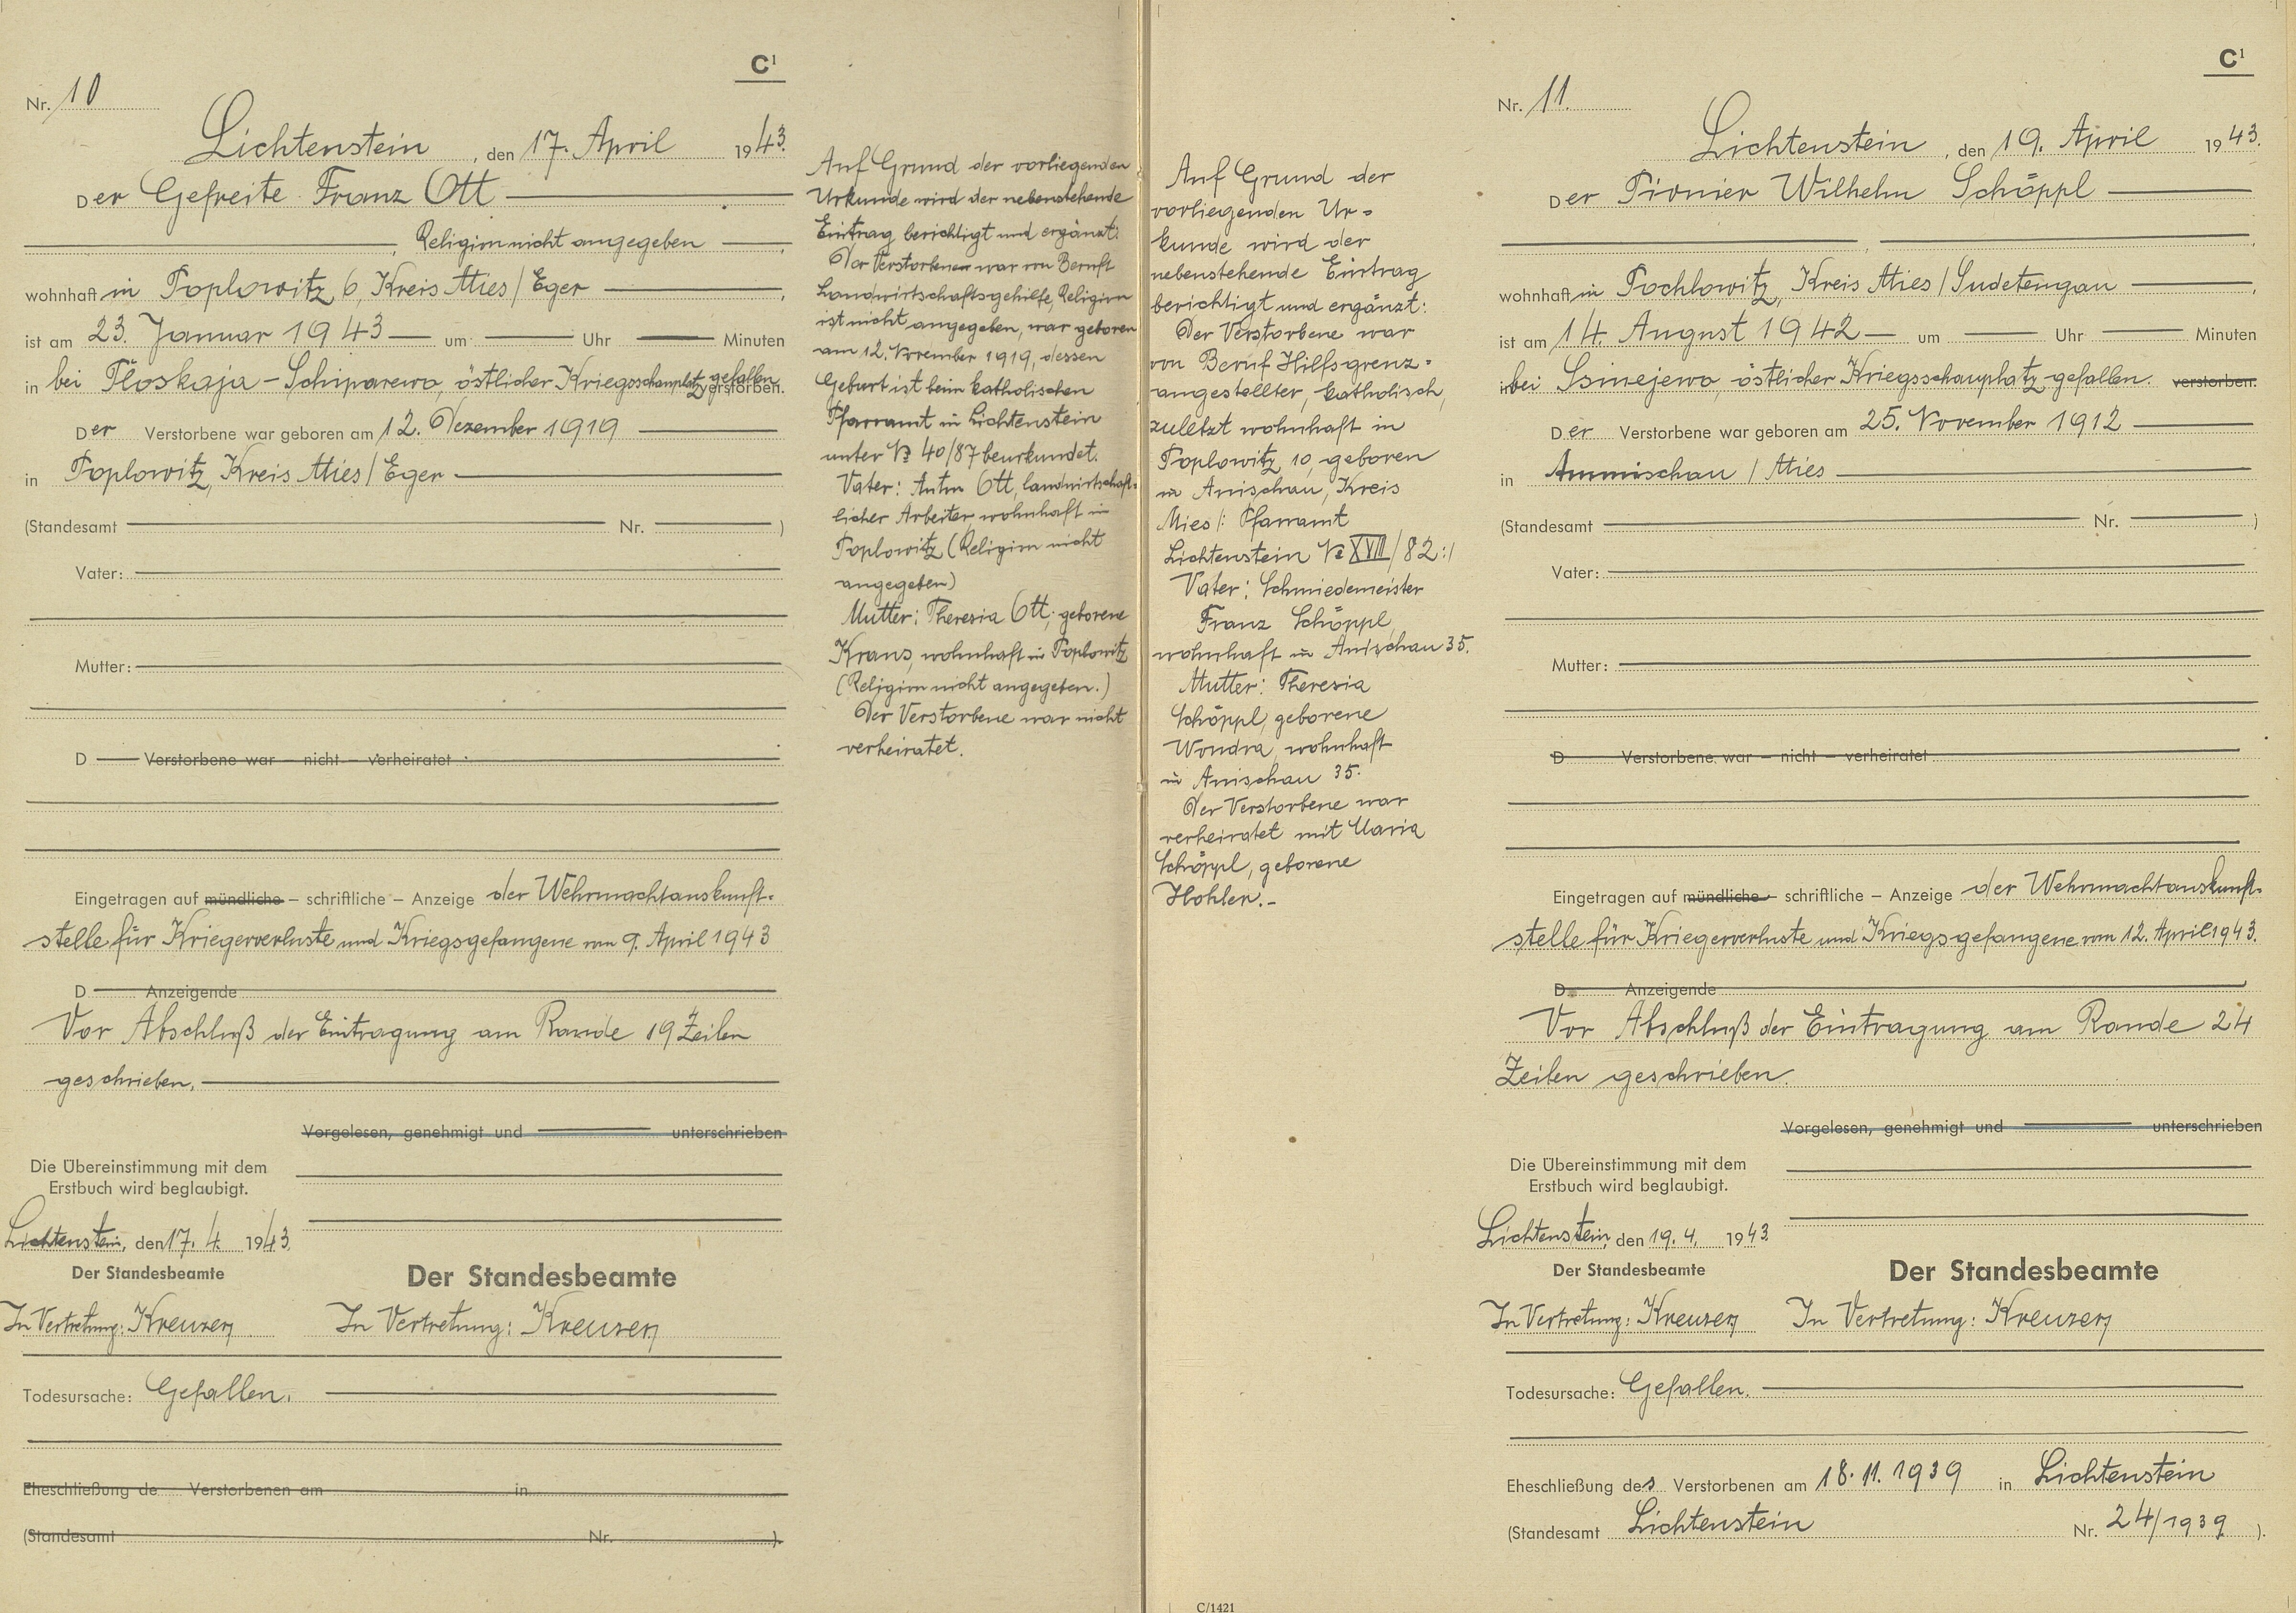 C¹
Nr. 10
Lichtenstein, den 17. April 1943.
Der Gefreite Franz Ott
, Religion nicht angegeben ,
wohnhaft in Poplowitz 6, Kreis Mies / Eger ,
ist am 23. Januar 1943 um Uhr Minuten
in bei Ploskaja - Schiparewo, östlicher Kriegsschauplatz gefallen verstorben.
Der Verstorbene war geboren am 12. Dezember 1919
in Poplowitz, Kreis Mies / Eger
(Standesamt Nr. )
Vater:
Mutter:
D Verstorbene war – nicht – verheiratet
Eingetragen auf mündliche – schriftliche – Anzeige der Wehrmachtauskunft-
stelle für Kriegerverluste und Kriegsgefangene vom 9. April 1943
D Anzeigende
Vor Abschluß der Eintragung am Rande 19 Zeilen
geschrieben.
Vorgelesen, genehmigt und unterschrieben
Die Übereinstimmung mit dem
Erstbuch wird beglaubigt.
Lichtenstein, den 17. 4. 1943.
Der Standesbeamte
In Vertretung: Kreuzer
Der Standesbeamte
In Vertretung: Kreuzer
Todesursache: Gefallen.
Eheschließung de Verstorbenen am in
(Standesamt Nr. ).
Auf Grund der vorliegenden
Urkunde wird der nebenstehende
Eintrag berichtigt und ergänzt:
Der Verstorbene war von Beruf
Landwirtschaftsgehilfe, Religion
ist nicht angegeben, war geboren
am 12. November 1919, dessen
Geburt ist beim katholischen
Pfarramt in Lichtenstein
unter № 40/87 beurkundet.
Vater: Anton Ott, landwirtschaft-
licher Arbeiter, wohnhaft in
Poplowitz (Religion nicht
angegeben)
Mutter: Theresia Ott, geborene
Kraus, wohnhaft in Poplowitz
(Religion nicht angegeben.)
Der Verstorbene war nicht
verheiratet.
Auf Grund der
vorliegenden Ur-
kunde wird der
nebenstehende Eintrag
berichtigt und ergänzt:
Der Verstorbene war
von Beruf Hilfsgrenz-
angestellter, katholisch,
zuletzt wohnhaft in
Poplowitz 10, geboren
in Anischau, Kreis
Mies /: Pfarramt
Lichtenstein № XVIII/82 :/
Vater: Schmiedemeister
Franz Schöppl,
wohnhaft in Anischau 35.
Mutter: Theresia
Schöppl, geborene
Wondra, wohnhaft
in Anischau 35.
Der Verstorbene war
verheiratet mit Maria
Schöppl, geborene
Hohler.-
C/1421
C¹
Nr. 11.
Lichtenstein, den 19. April 1943.
Der Pionier Wilhelm Schöppl
, ,
wohnhaft in Pochlowitz, Kreis Mies / Sudetengau ,
ist am 14. August 1942 um Uhr Minuten
in bei Ssinejewo, östlicher Kriegsschauplatz gefallen. verstorben.
Der Verstorbene war geboren am 25. November 1912
in Ammischau / Mies
(Standesamt Nr. )
Vater:
Mutter:
D Verstorbene war – nicht – verheiratet
Eingetragen auf mündliche – schriftliche – Anzeige der Wehrmachtauskunft-
stelle für Kriegerverluste und Kriegsgefangene vom 12. April 1943.
D Anzeigende
Vor Abschluß der Eintragung am Rande 24
Zeilen geschrieben.
Vorgelesen, genehmigt und unterschrieben
Die Übereinstimmung mit dem
Erstbuch wird beglaubigt.
Lichtenstein, den 19. 4. 1943
Der Standesbeamte
In Vertretung: Kreuzer
Der Standesbeamte
In Vertretung: Kreuzer
Todesursache: Gefallen.
Eheschließung des Verstorbenen am 18. 11. 1939 in Lichtenstein
(Standesamt Lichtenstein Nr. 24/1939 ).